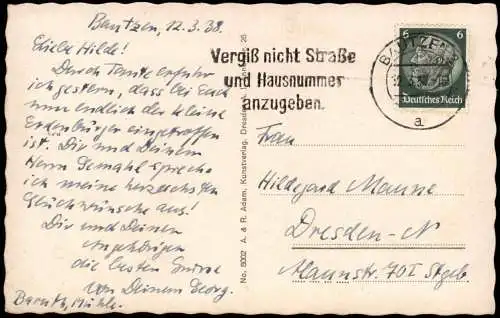 Bautzen, 12.3.38.
Liebe Hilde!
Durch Tante erfuhr
ich gestern, dass bei Euch
nun endlich der kleine
Erdenbürger eingetroffen
ist. Dir und Deinem
Herrn Gemahl spreche
ich meine herzlichsten
Glückwünsche aus!
Dir und Deinen
Angehörigen
die besten Grüsse
von Deinem Georg.
No. 8002 A. & R. Adam, Kunstverlag, Dresden 26
Vergiß nicht Straße
und Hausnummer
anzugeben.
BAUTZEN
a
6 6
Deutsches Reich
Frau
Hildegard
Dresden-N
70I